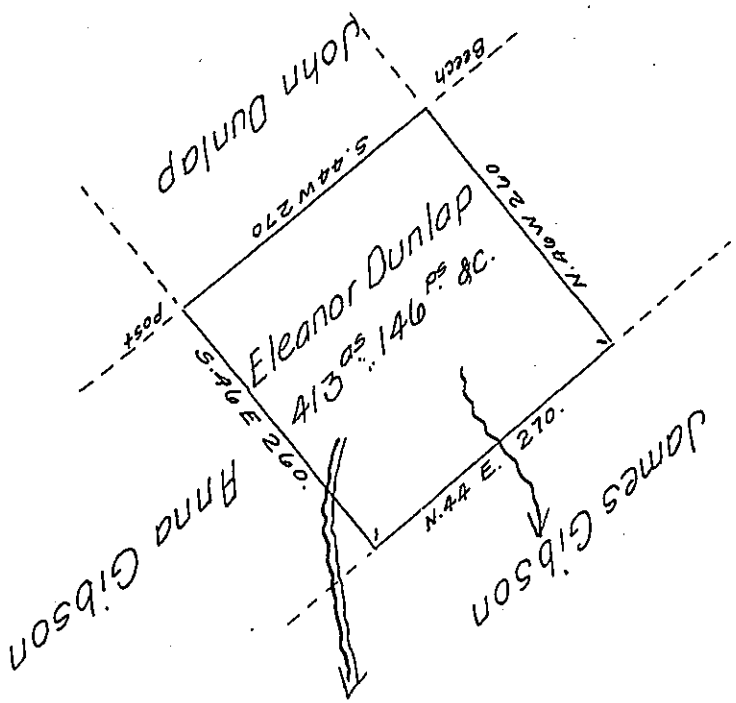 John Dunlap
Beech
S.44W 270
N.46W 260
post
Eleanor Dunlap
413 as „ 146 ps. &c.
S.46 E 260.
N.44 E. 270.
Anna Gibson
James Gibson